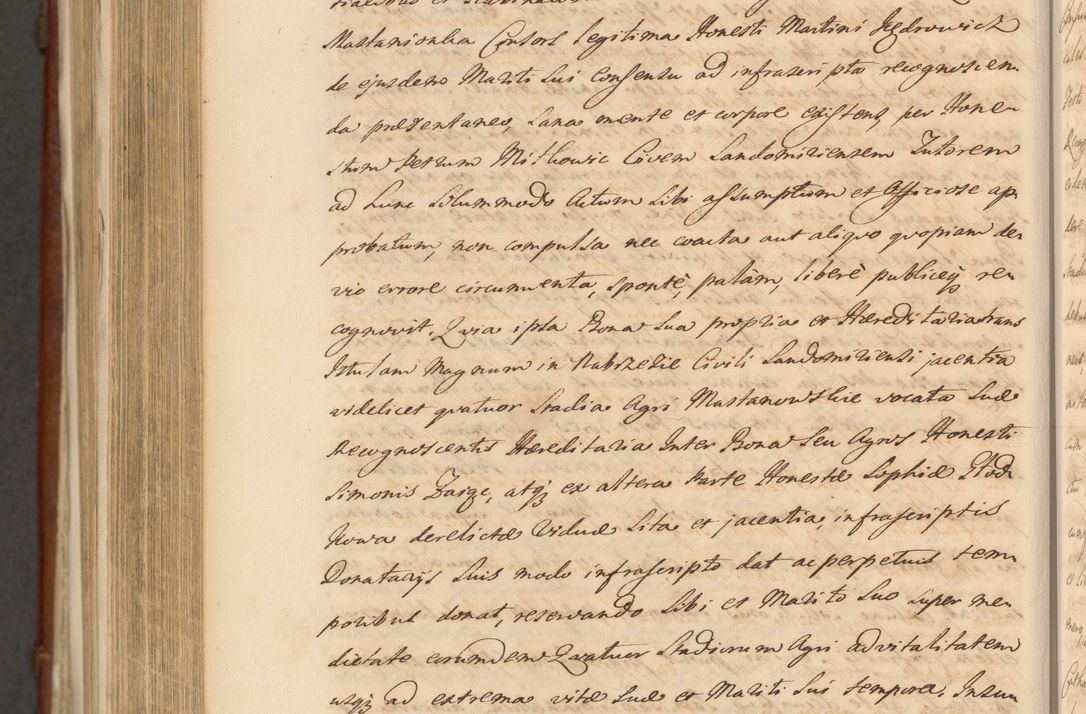 Mastanionka Consors legitima Honesti Martini Jędrowicz
de ejusdem Mariti Sui Consensu ad infrascripta recognoscen
da præsentaneo, Sana mente et corpore existens, per Hone
stum Petrum Mitkowic Civem Sandomiriensem Tutorem
ad hunc Solummodo Actum Sibi assumptum et Officiose ap
probatum, non compulsa nec coacta aut aliquo quopiam de
vio errore circumventa, sponte, palàm, liberè publiceq́ re
cognovit. Quia ipsa Bona Sua propria et Hæreditaria trans
Istulam Magnum in Nabrzezie Civili Sandomiriensi jacentia
videlicet quatuor Stadia Agri Mastanowskie vocata Suæ
Recognoscentis Hæreditaria Inter Bona Seu Agros Honesti
Simonis Zaige, atq́ ex altera Parte Honestæ Sophiæ
kowa derelictæ Viduæ Sita et jacentia, infrascriptis
Donatarÿs Suis modo infrascripto dat ac perpetuis tem
poribus donat, reservando Sibi et Marito Suo super me
dietate eorumdem Quatuor Stadiorum Agri advitalitatem
usq́ ad extrema vitæ Suæ et Mariti Sui tempora. Insu